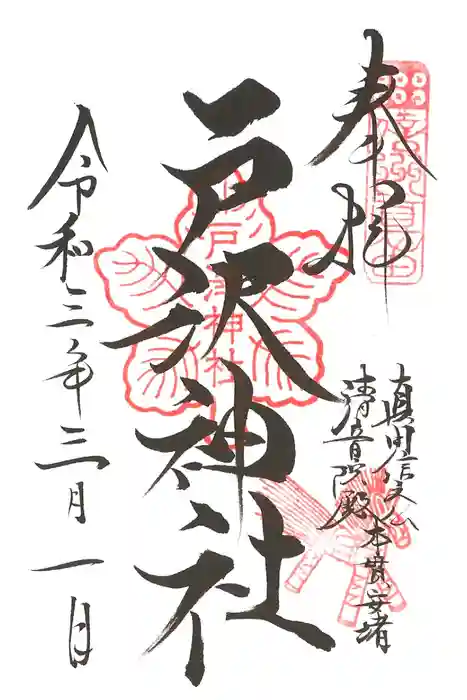 奉拝
真田信之公本貫安堵
清音院殿
戸沢神社
戸沢神社
令和三年三月一日